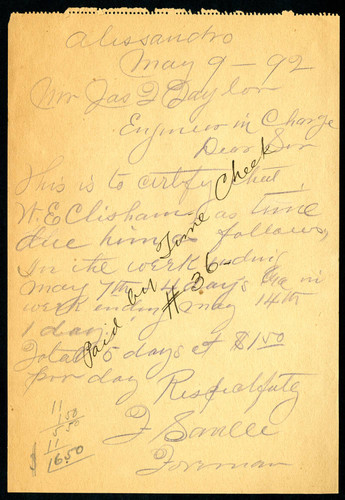 Alissandro
May 9 - 92
Mr Jas T Taylor
Engineer in Charge
Dear Sir
This is to certify that
W. E. Clisham has time
due him as follows
In the week ending
May 7th 4 days in
week ending May 14th
1 day
Total 5 days at $1.50
per day Respectfully
Foreman
Paid by Time Check
#36-
11
.50
5.50
11
$ 16.50